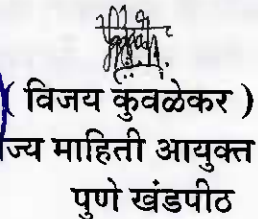 ( विजय कुवळेकर )
ज्य माहिती आयुक्त
पुणे खंडपीठ